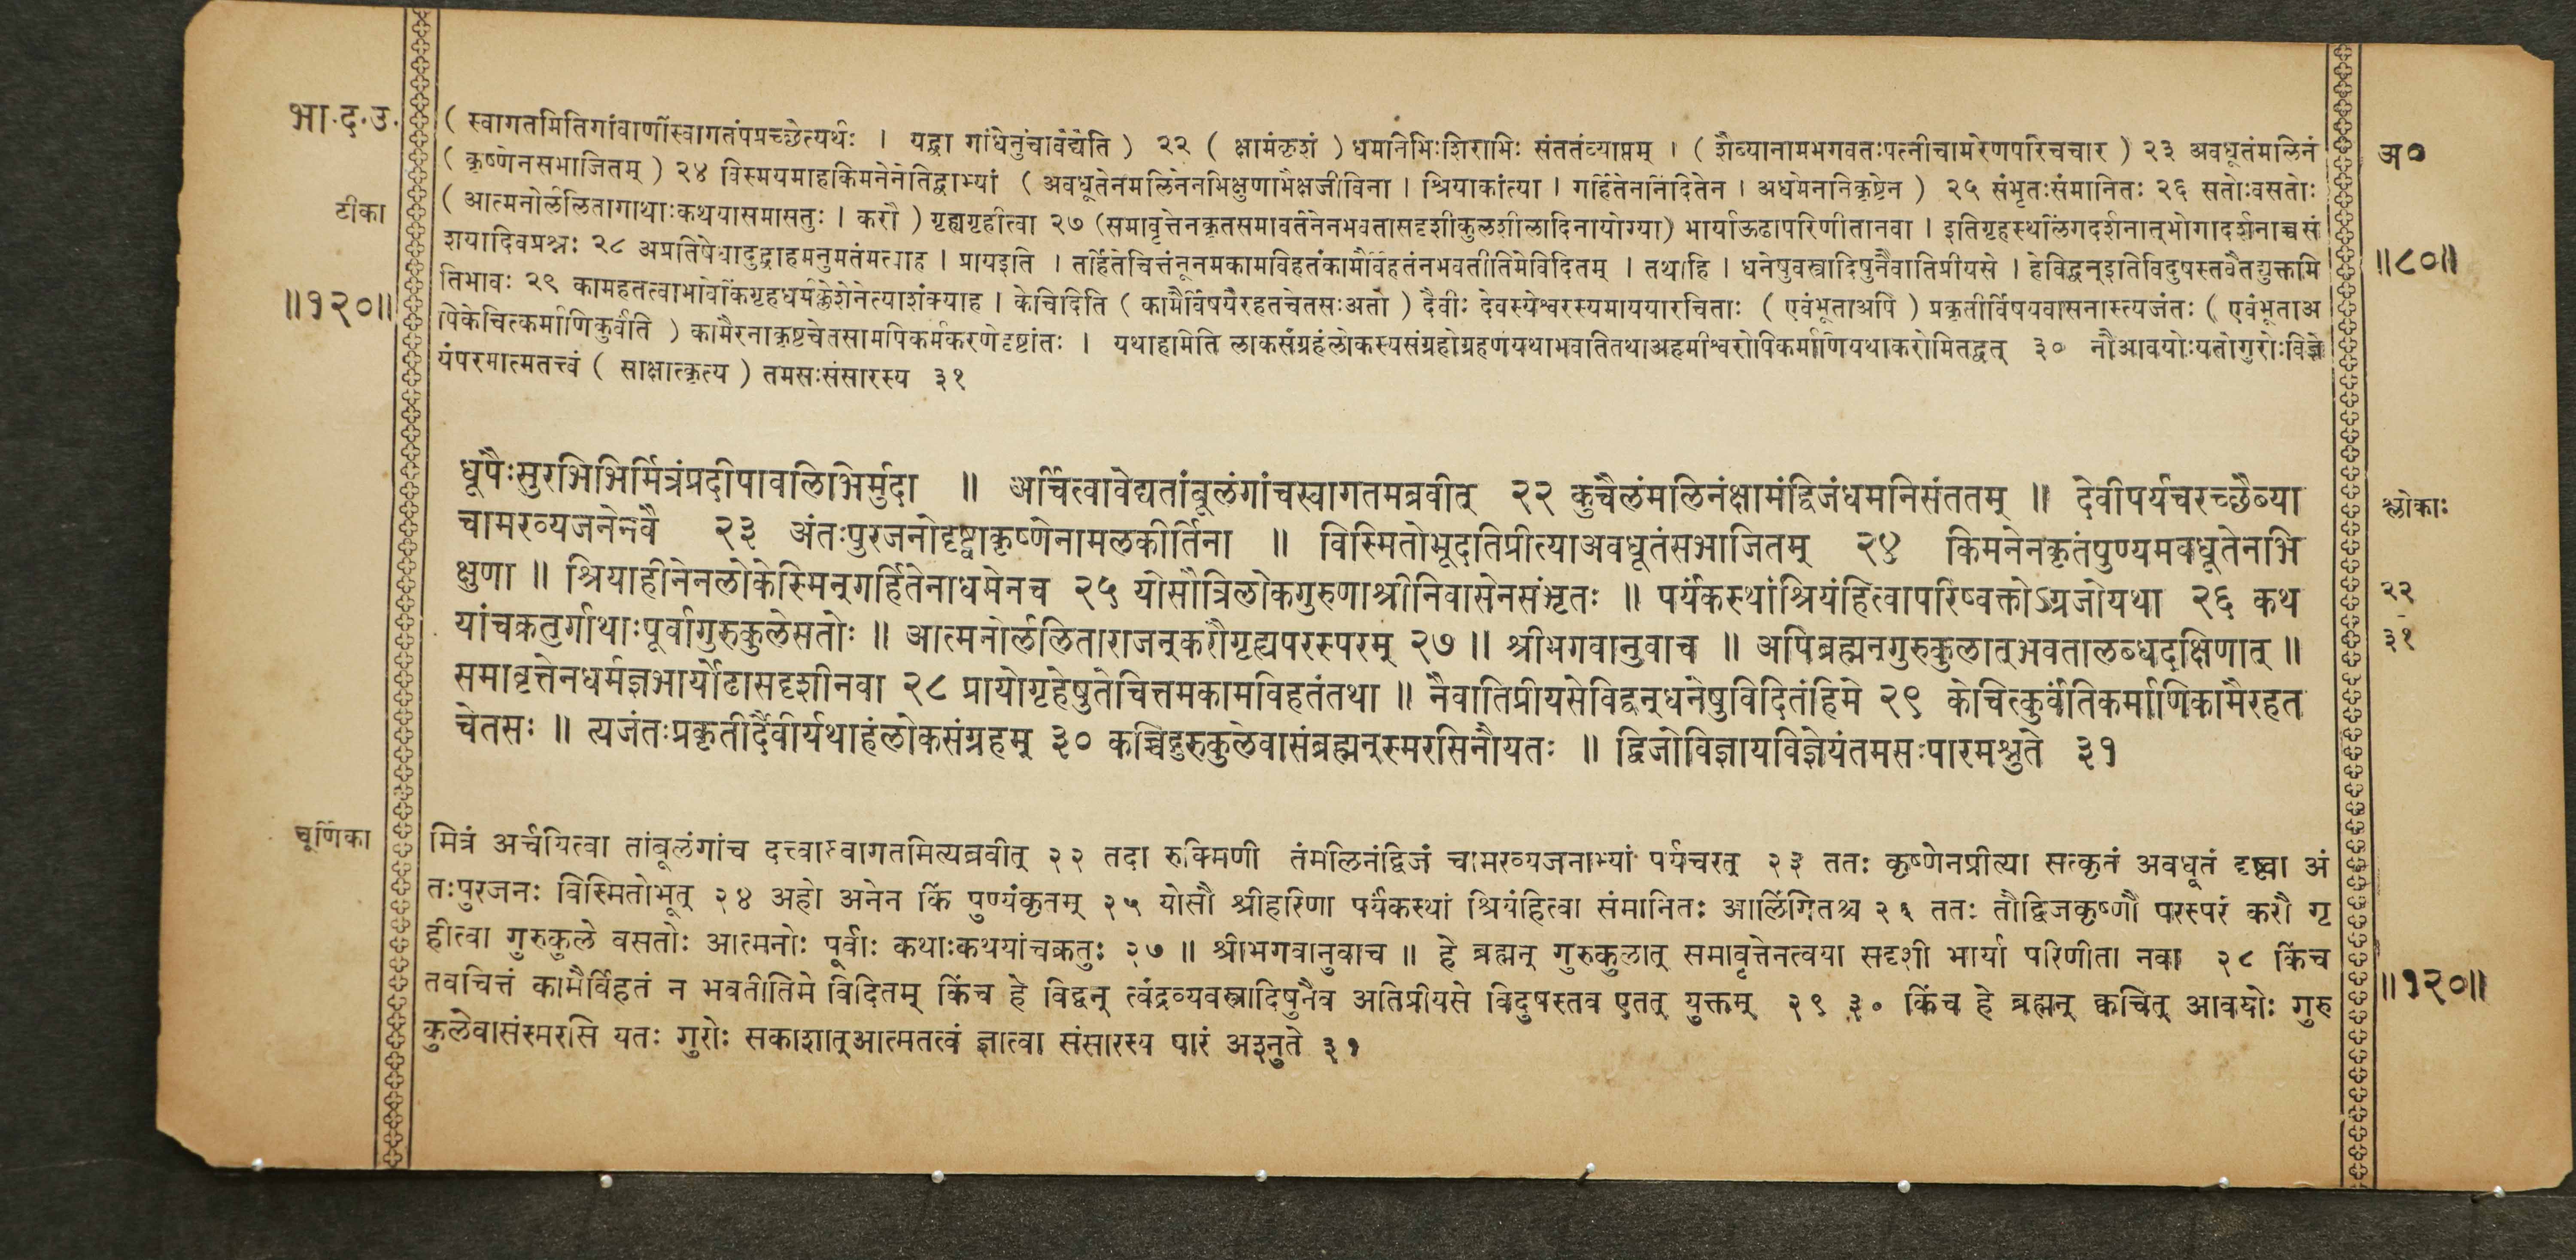 भा.द.उ.
टीका
॥१२०॥
(स्वागतमितिगांवाणींस्वागतंपप्रच्छेत्यर्थः । यद्वा गांधेनुंचावंद्येति) २२ (क्षामंकृशं) धमनिभिःशिराभिः संततंव्याप्तम् । (शैब्यानामभगवतःपत्नीचामरेणपरिचचार) २३ अवधूतंमलिनं
(कृष्णेनसभाजितम्) २४ विस्मयमाहकिमनेनेतिद्वाभ्यां (अवधूतेनमलिनेनभिक्षुणाभैक्षजीविना । श्रियाकांत्या । गर्हितेननिंदितेन । अधमेननिकृष्टेन) २५ संभृतःसंमानितः २६ सतोःवसतोः
(आत्मनोर्ललितागाथाःकथयासमासतुः । करौ) गृह्यगृहीत्वा २७ (समावृत्तेनकृतसमावर्तनेनभवतासदृशीकुलशीलादिनायोग्या) भार्याऊढापरिणीतानवा । इतिगृहस्थलिंगदर्शनात्भोगादर्शनाच्चसं
शयादिवप्रश्नः २८ अप्रतिषेधादुद्वाहमनुमतंमत्वाह । प्रायइति । तर्हितेचित्तंनूनमकामविहतंकामैर्विहतंनभवतीतिमेविदितम् । तथाहि । धनेषुवस्त्रादिषुनैवातिप्रीयसे । हेविद्वन्इतिविदुषस्तवैतद्युक्तमि
तिभावः २९ कामहतत्वाभावेकिंगृहधर्मक्लेशेनेत्याशंक्याह । केचिदिति (कामैर्विषयैरहतचेतसःअतो) दैवीः देवस्येश्वरस्यमाययारचिताः (एवंभूताअपि) प्रकृतीर्विषयवासनास्त्यजंतः (एवंभूताअ
पिकेचित्कर्माणिकुर्वंति) कामैरनाकृष्टचेतसामपिकर्मकरणेदृष्टांतः । यथाहमिति लोकसंग्रहंलोकस्यसंग्रहोग्रहणंयथाभवतितथाअहमीश्वरोपिकर्माणियथाकरोमितद्वत् ३० नौआवयोःयतोगुरोःविज्ञे
यंपरमात्मतत्त्वं (साक्षात्कृत्य) तमसःसंसारस्य ३१
अ०
॥८०॥
धूपैःसुरभिभिर्मित्रंप्रदीपावलिभिर्मुदा ॥ अर्चित्वावेद्यतांबूलंगांचस्वागतमब्रवीत् २२ कुचैलंमलिनंक्षामंद्विजंधमनिसंततम् ॥ देवीपर्यचरच्छैब्या
चामरव्यजनेनवै २३ अंतःपुरजनोदृष्ट्वाकृष्णेनामलकीर्तिना ॥ विस्मितोभूदतिप्रीत्याअवधूतंसभाजितम् २४ किमनेनकृतंपुण्यमवधूतेनभि
क्षुणा ॥ श्रियाहीनेनलोकेस्मिन्गर्हितेनाधमेनच २५ योसौत्रिलोकगुरुणाश्रीनिवासेनसंभृतः ॥ पर्यंकस्थांश्रियंहित्वापरिष्वक्तोऽग्रजोयथा २६ कथ
यांचक्रतुर्गाथाःपूर्वागुरुकुलेसतोः ॥ आत्मनोर्ललिताराजन्करौगृह्यपरस्परम् २७ ॥ श्रीभगवानुवाच ॥ अपिब्रह्मन्गुरुकुलात्भवतालब्धदक्षिणात् ॥
समावृत्तेनधर्मज्ञभार्योढासदृशीनवा २८ प्रायोगृहेषुतेचित्तमकामविहतंतथा ॥ नैवातिप्रीयसेविद्वन्धनेषुविदितंहिमे २९ केचित्कुर्वंतिकर्माणिकामैरहत
चेतसः ॥ त्यजंतःप्रकृतीर्दैवीर्यथाहंलोकसंग्रहम् ३० कच्चिद्गुरुकुलेवासंब्रह्मन्स्मरसिनौयतः ॥ द्विजोविज्ञायविज्ञेयंतमसःपारमश्नुते ३१
श्लोकाः
२२
३१
चूर्णिका
मित्रं अर्चयित्वा तांबूलंगांच दत्त्वास्वागतमित्यब्रवीत् २२ तदा रुक्मिणी तंमलिनंद्विजं चामरव्यजनाभ्यां पर्यचरत् २३ ततः कृष्णेनप्रीत्या सत्कृतं अवधूतं दृष्ट्वा अं
तःपुरजनः विस्मितोभूत् २४ अहो अनेन किं पुण्यंकृतम् २५ योसौ श्रीहरिणा पर्यंकस्थां श्रियंहित्वा संमानितः आलिंगितश्च २६ ततः तौद्विजकृष्णौ परस्परं करौ गृ
हीत्वा गुरुकुले वसतोः आत्मनोः पूर्वाः कथाःकथयांचक्रतुः २७ ॥ श्रीभगवानुवाच ॥ हे ब्रह्मन् गुरुकुलात् समावृत्तेनत्वया सदृशी भार्या परिणीता नवा २८ किंच
तवचित्तं कामैर्विहतं न भवतीतिमे विदितम् किंच हे विद्वन् त्वंद्रव्यवस्त्रादिषुनैव अतिप्रीयसे विदुषस्तव एतत् युक्तम् २९ ३० किंच हे ब्रह्मन् क्वचित् आवयोः गुरु
कुलेवासंस्मरसि यतः गुरोः सकाशात्आत्मतत्वं ज्ञात्वा संसारस्य पारं अश्नुते ३१
॥१२०॥